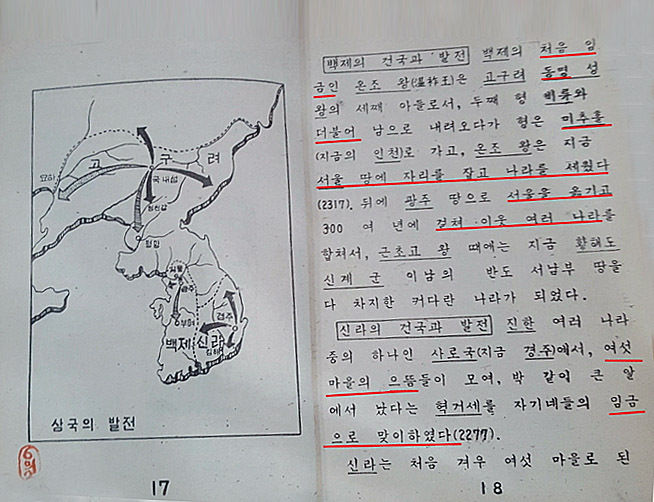 고 구 려
요하
국내성
환인
평양
서울
광주
부여
경주
백제 신라
김해
삼국의 발전
17
백제의 건국과 발전 백제의 처음 임
금인 온조 왕(溫祚王)은 고구려 동명 성
왕의 세째 아들로서, 두째 형 비류와
더불어 남으로 내려오다가 형은 미추홀
(지금의 인천)로 가고, 온조 왕은 지금
서울 땅에 자리를 잡고 나라를 세웠다
(2317). 뒤에 광주 땅으로 서울을 옮기고
300 여 년에 걸쳐 이웃 여러 나라를
합쳐서, 근초고 왕 때에는 지금 황해도
신계 군 이남의 반도 서남부 땅을
다 차지한 커다란 나라가 되었다.
신라의 건국과 발전 진한 여러 나라
중의 하나인 사로국(지금 경주)에서, 여섯
마을의 으뜸들이 모여, 박 같이 큰 알
에서 났다는 혁거세를 자기네들의 임금
으로 맞이하였다(2277).
신라는 처음 겨우 여섯 마을로 된
18